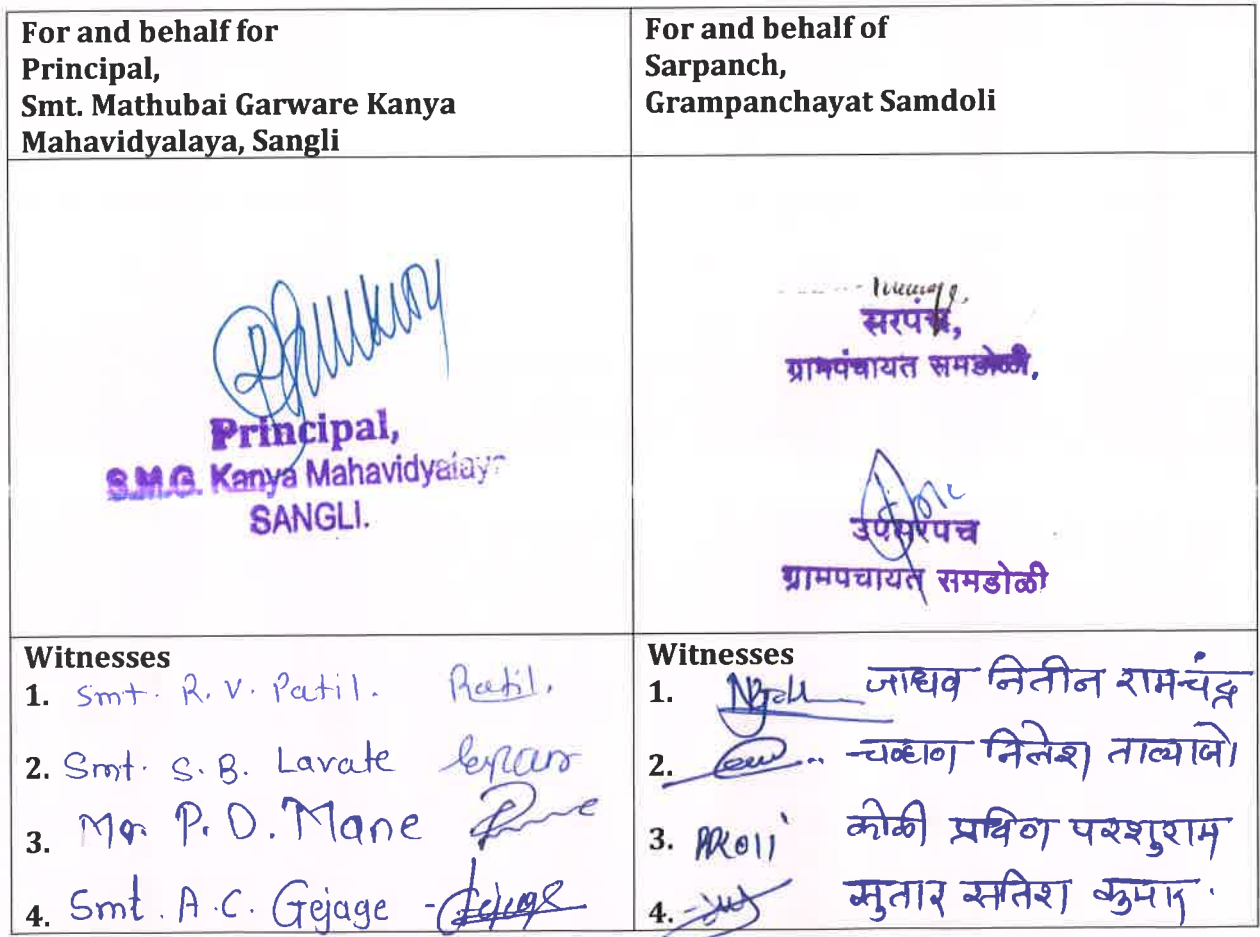 For and behalf for
Principal,
Smt. Mathubai Garware Kanya
Mahavidyalaya, Sangli
For and behalf of
Sarpanch,
Grampanchayat Samdoli
Principal,
S.M.G. Kanya Mahavidyalaya
SANGLI.
सरपंच,
ग्रामपंचायत समडोळी.
उपसरपच
ग्रामपचायत समडोळी
Witnesses
1. Smt. R. V. Patil. Patil.
2. Smt. S. B. Lavate
3. Mr. P. D. Mane
4. Smt. A. C. Gejage - Gejage
Witnesses
1. जाधव नितीन रामचंद्र
2. चव्हाण निलेश
3. PRKoli कोळी प्रविण परशुराम
4. सुतार सतिश कुमार.